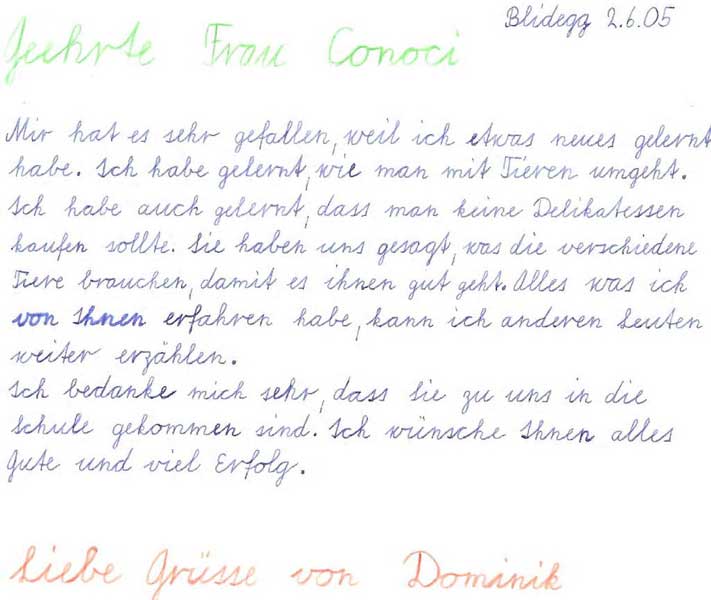 Blidegg 2.6.05
Geehrte Frau Conoci
Mir hat es sehr gefallen, weil ich etwas neues gelernt
habe. Ich habe gelernt, wie man mit Tieren umgeht.
Ich habe auch gelernt, dass man keine Delikatessen
kaufen sollte. Sie haben uns gesagt, was die verschiedene
Tiere brauchen, damit es ihnen gut geht. Alles was ich
von Ihnen erfahren habe, kann ich anderen Leuten
weiter erzählen.
Ich bedanke mich sehr, dass Sie zu uns in die
Schule gekommen sind. Ich wünsche Ihnen alles
Gute und viel Erfolg.
Liebe Grüsse von Dominik